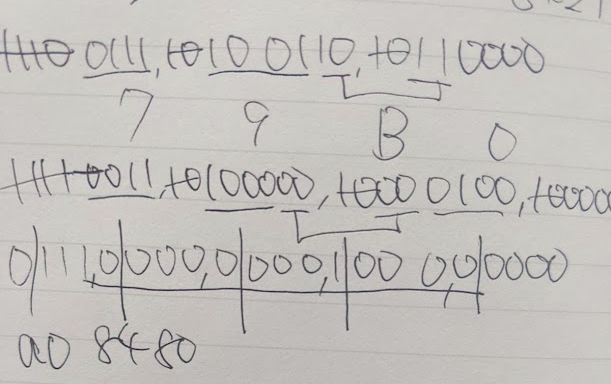 1110 0111, 10100110, 10110000
7 9 B 0
11110011, 10100000, 10000100, 100000
0|111,0|000,0|000,1|00 0,0|0000
a0 8480